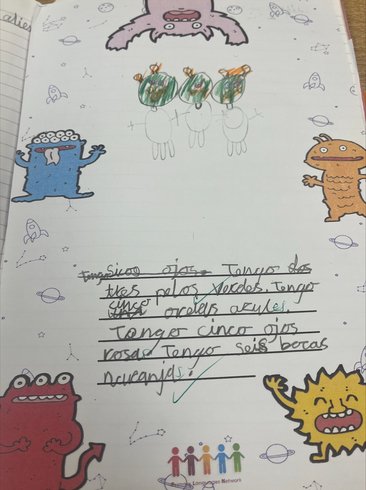 alie
Tengo ojos. Tengo dos
tres pelos verdes. Tengo
cinco orejas azules.
Tango cinco ojos
rosa Tengo seis bocas
naranjas.
Languages Network